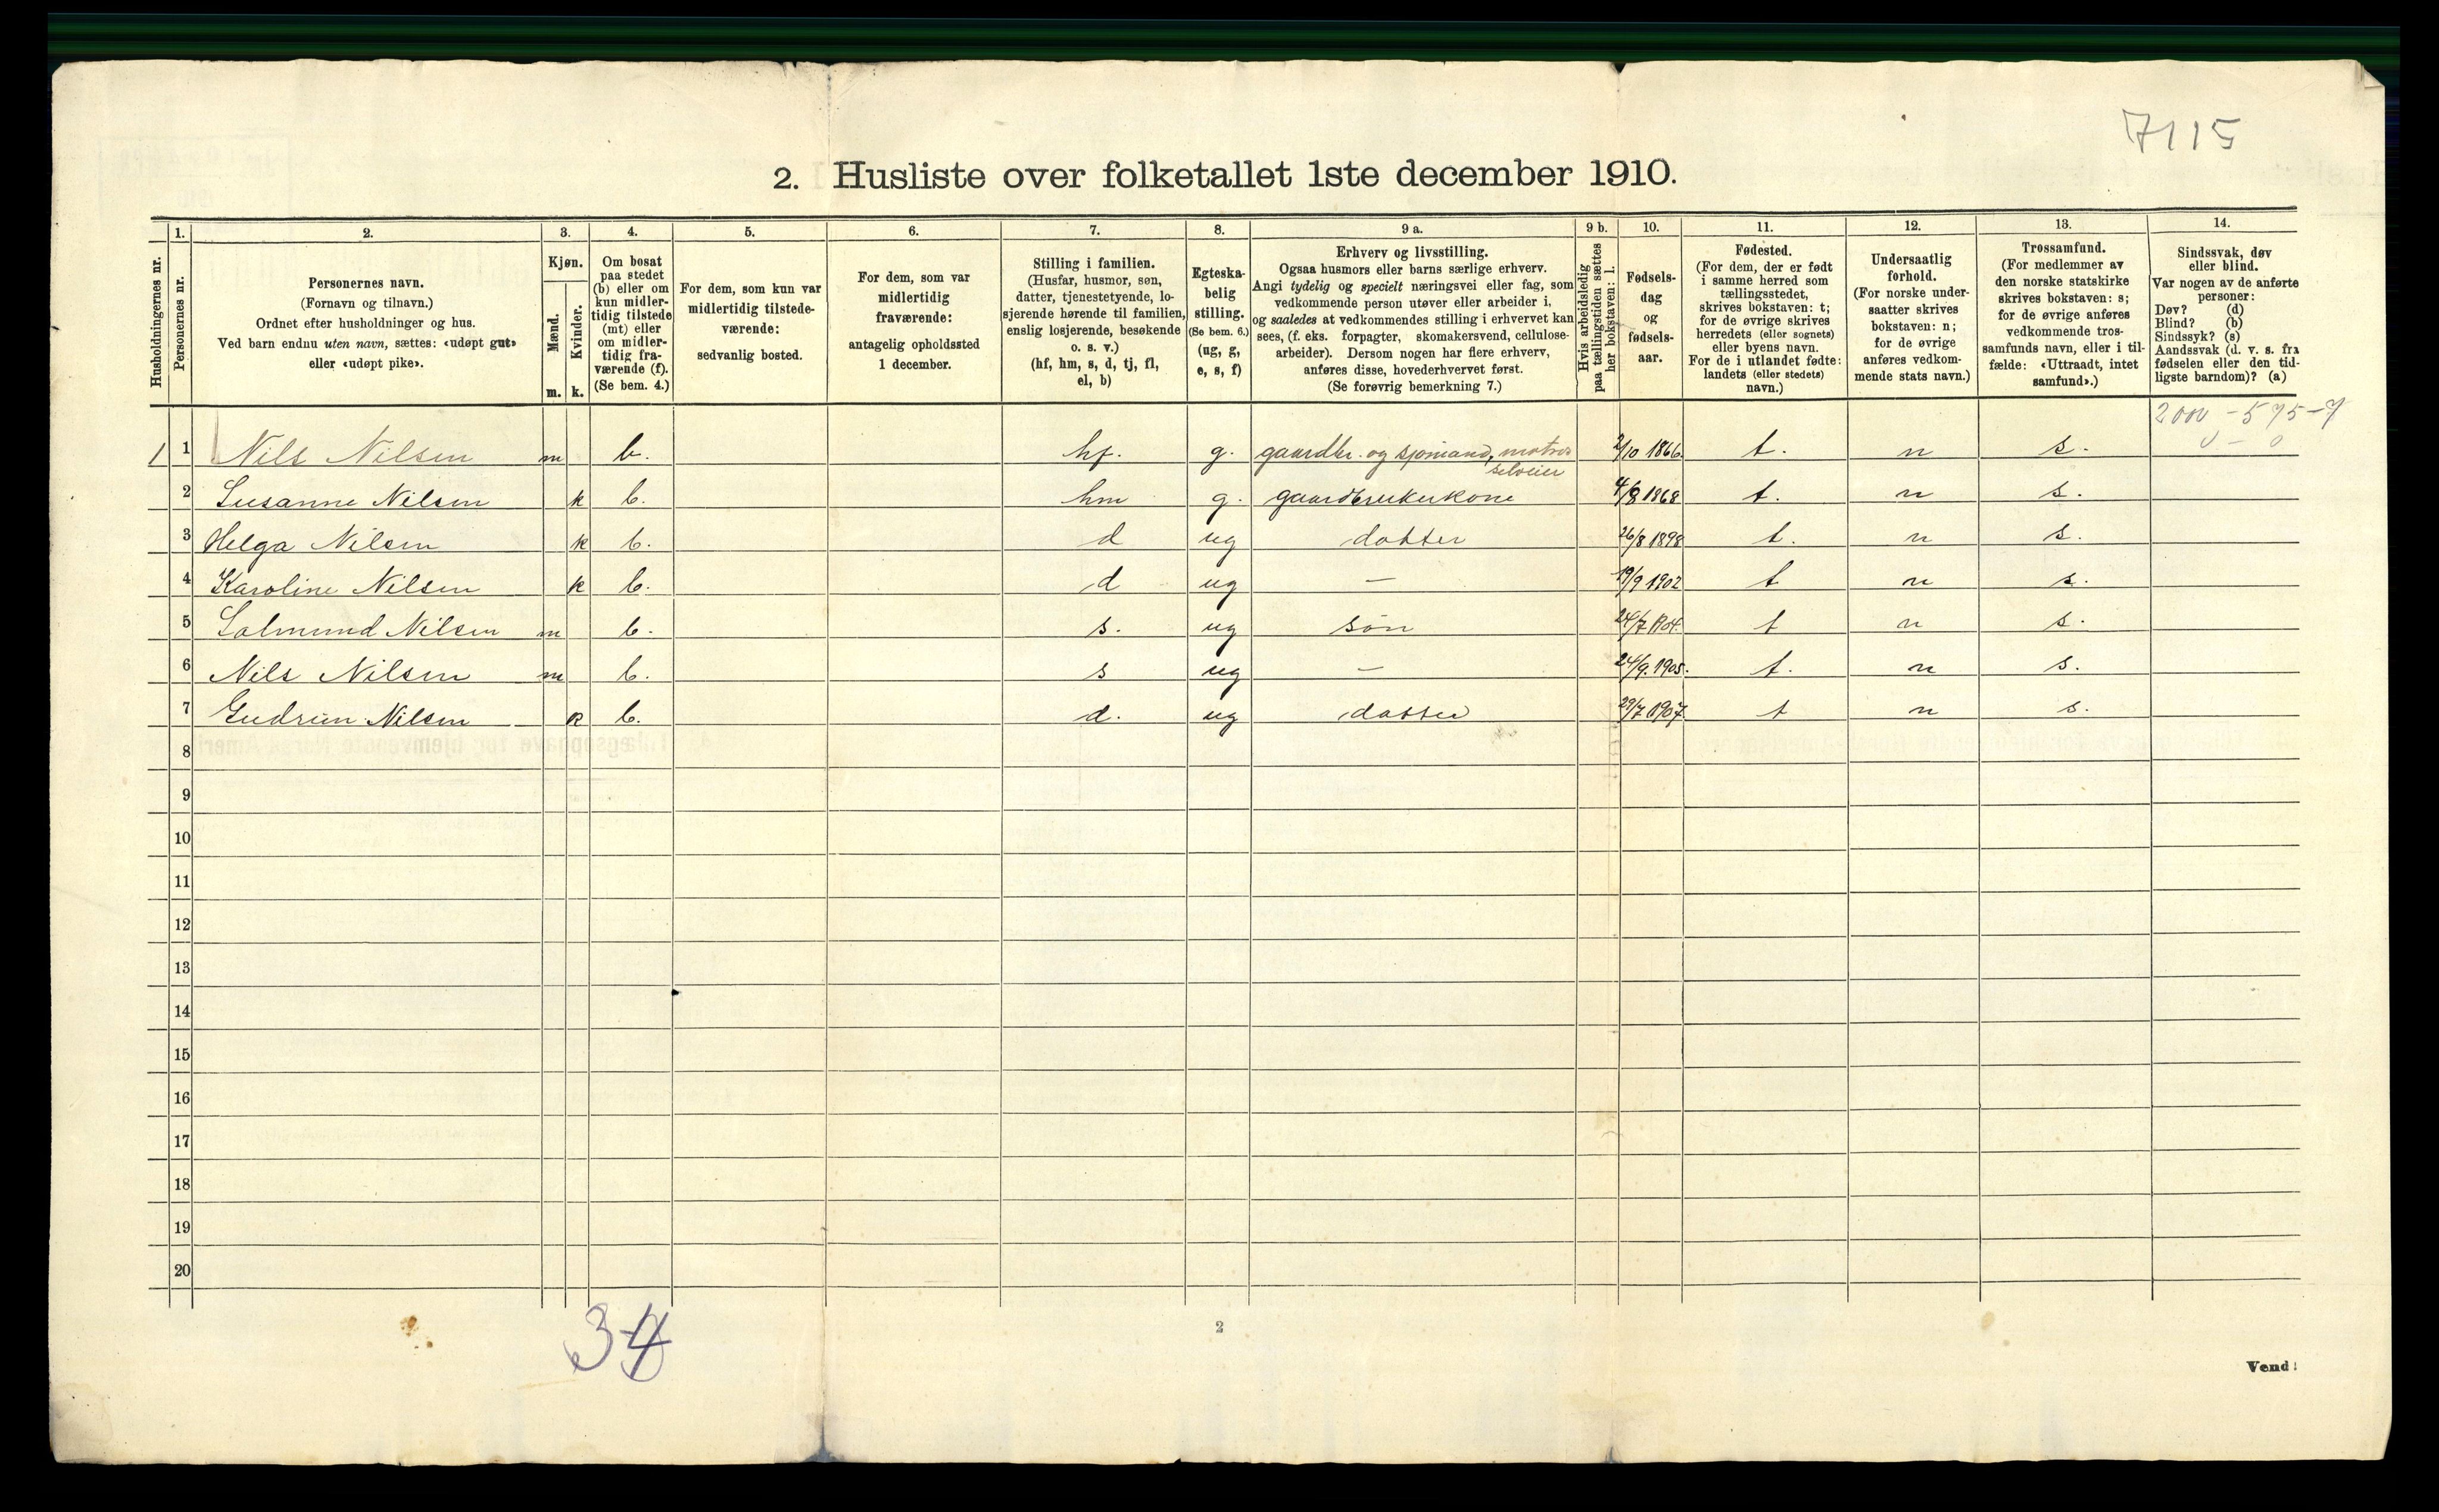 7115
2. Husliste over folketallet 1ste december 1910.
Husholdningernes nr.
1.
Personernes nr.
2.
Personernes navn.
(Fornavn og tilnavn.)
Ordnet efter husholdninger og hus.
Ved barn endnu uten navn, sættes: «udøpt gut»
eller «udøpt pike».
3.
Kjøn.
Mænd.
m.
Kvinder.
k.
4.
Om bosat
paa stedet
(b) eller om
kun midler-
tidig tilstede
(mt) eller
om midler-
tidig fra-
værende (f).
(Se bem. 4.)
5.
For dem, som kun var
midlertidig tilstede-
værende:
sedvanlig bosted.
6.
For dem, som var
midlertidig
fraværende:
antagelig opholdssted
1 december.
7.
Stilling i familien.
(Husfar, husmor, søn,
datter, tjenestetyende, lo-
sjerende hørende til familien,
enslig losjerende, besøkende
o. s. v.)
(hf, hm, s, d, tj, fl,
el, b)
8.
Egteska-
belig
stilling.
(Se bem. 6.)
(ug, g,
e, s, f)
9 a.
Erhverv og livsstilling.
Ogsaa husmors eller barns særlige erhverv.
Angi tydelig og specielt næringsvei eller fag, som
vedkommende person utøver eller arbeider i,
og saaledes at vedkommendes stilling i erhvervet kan
sees, (f. eks. forpagter, skomakersvend, cellulose-
arbeider). Dersom nogen har flere erhverv,
anføres disse, hovederhvervet først.
(Se forøvrig bemerkning 7.)
9 b.
Hvis arbeidsledig
paa tællingstiden sættes
her bokstaven: l.
10.
Fødsels-
dag
og
fødsels-
aar.
11.
Fødested.
(For dem, der er født
i samme herred som
tællingsstedet,
skrives bokstaven: t;
for de øvrige skrives
herredets (eller sognets)
eller byens navn.
For de i utlandet fødte:
landets (eller stedets)
navn.)
12.
Undersaatlig
forhold.
(For norske under-
saatter skrives
bokstaven: n;
for de øvrige
anføres vedkom-
mende stats navn.)
13.
Trossamfund.
(For medlemmer av
den norske statskirke
skrives bokstaven: s;
for de øvrige anføres
vedkommende tros-
samfunds navn, eller i til-
fælde: «Uttraadt, intet
samfund».)
14.
Sindssvak, døv
eller blind.
Var nogen av de anførte
personer:
Døv? (d)
Blind? (b)
Sindssyk? (s)
Aandssvak (d. v. s. fra
fødselen eller den tid-
ligste barndom)? (a)
1 1 Nils Nilsen m b. hf. g. gaardbr. og sjømand, matros 2/10 1866. t. n s.
selveier
2 Susanne Nilsen k b. hm g. gaardbrukerkone 4/8 1868 t. n s.
3 Helga Nilsen k b. d ug datter 26/8 1898 t. n s.
4 Karoline Nilsen k b. d ug — 19/9 1902 t n s.
5 Salmund Nilsen m b. s. ug søn 24/7 1904. t n s.
6 Nils Nilsen m b. s ug — 24/9. 1905. t. n s.
7 Gudrun Nilsen k b. d. ug datter 29/7 1907. t n s.
8
9
10
11
12
13
14
15
16
17
18
19
20
2
Vend!